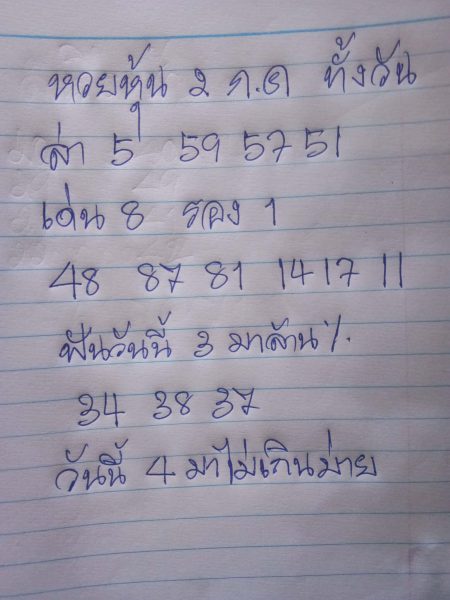 หวยหุ้น 2 ก.ค ทั้งวัน
ล่า 5 59 57 51
เด่น 8 รอง 1
48 87 81 14 17 11
ฟันวันนี้ 3 มาล้าน%
34 38 37
วันนี้ 4 มาไม่เกินบ่าย